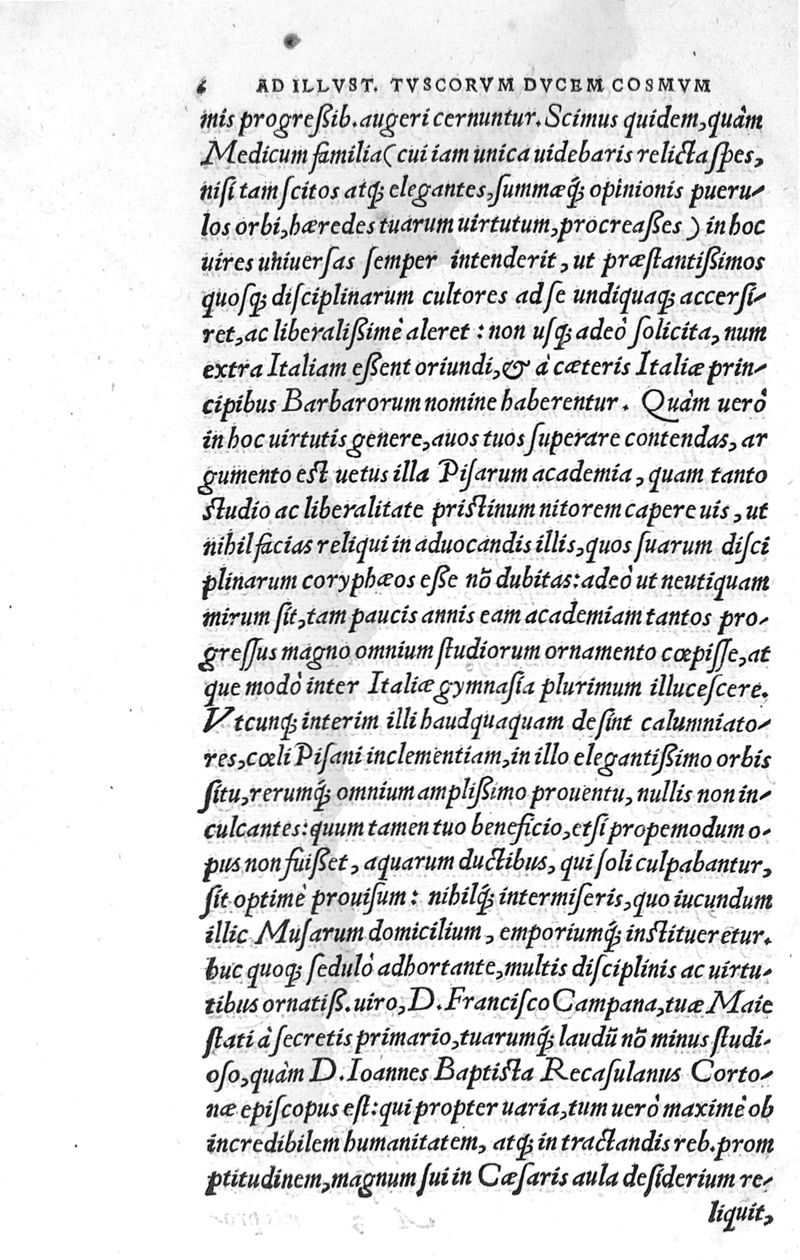 6 AD ILLVST. TVSCORVM DVCEM COSMVM
mis progreßib. augeri cernuntur. Scimus quidem, quàm
Medicum familia (cui iam unica uidebaris relicta spes,
nisi tam scitos atq; elegantes, summæq́; opinionis pueru-
los orbi, hæredes tuarum uirtutum, procreaßes) in hoc
uires uniuersas semper intenderit, ut præstantißimos
quosq; disciplinarum cultores ad se undiquaq; accersi-
ret, ac liberalißimè aleret: non usq; adeò solicita, num
extra Italiam eßent oriundi, & à cæteris Italiæ prin-
cipibus Barbarorum nomine haberentur. Quàm uerò
in hoc uirtutis genere, auos tuos superare contendas, ar
gumento est uetus illa Pisarum academia, quam tanto
studio ac liberalitate pristinum nitorem capere uis, ut
nihil facias reliqui in aduocandis illis, quos suarum disci
plinarum coryphæos eße nõ dubitas: adeò ut neutiquam
mirum sit, tam paucis annis eam academiam tantos pro-
gressus magno omnium studiorum ornamento cœpisse, at
que modò inter Italiæ gymnasia plurimum illucescere.
Vtcunq; interim illi haudquaquam desint calumniato-
res, cœli Pisani inclementiam, in illo elegantißimo orbis
situ, rerumq́; omnium amplißimo prouentu, nullis non in-
culcantes: quum tamen tuo beneficio, etsi propemodum o-
pus non fuißet, aquarum ductibus, qui soli culpabantur,
sit optimè prouisum: nihilq́; intermiseris, quo iucundum
illic Musarum domicilium, emporiumq́; institueretur.
huc quoq; sedulò adhortante, multis disciplinis ac uirtu-
tibus ornatiß. uiro, D. Francisco Campana, tuæ Maie
stati à secretis primario, tuarumq́; laudũ nõ minus studi-
oso, quàm D. Ioannes Baptista Recasulanus Corto-
næ episcopus est: qui propter uaria, tum uerò maximè ob
incredibilem humanitatem, atq; in tractandis reb. prom
ptitudinem, magnum sui in Cæsaris aula desiderium re-
liquit,